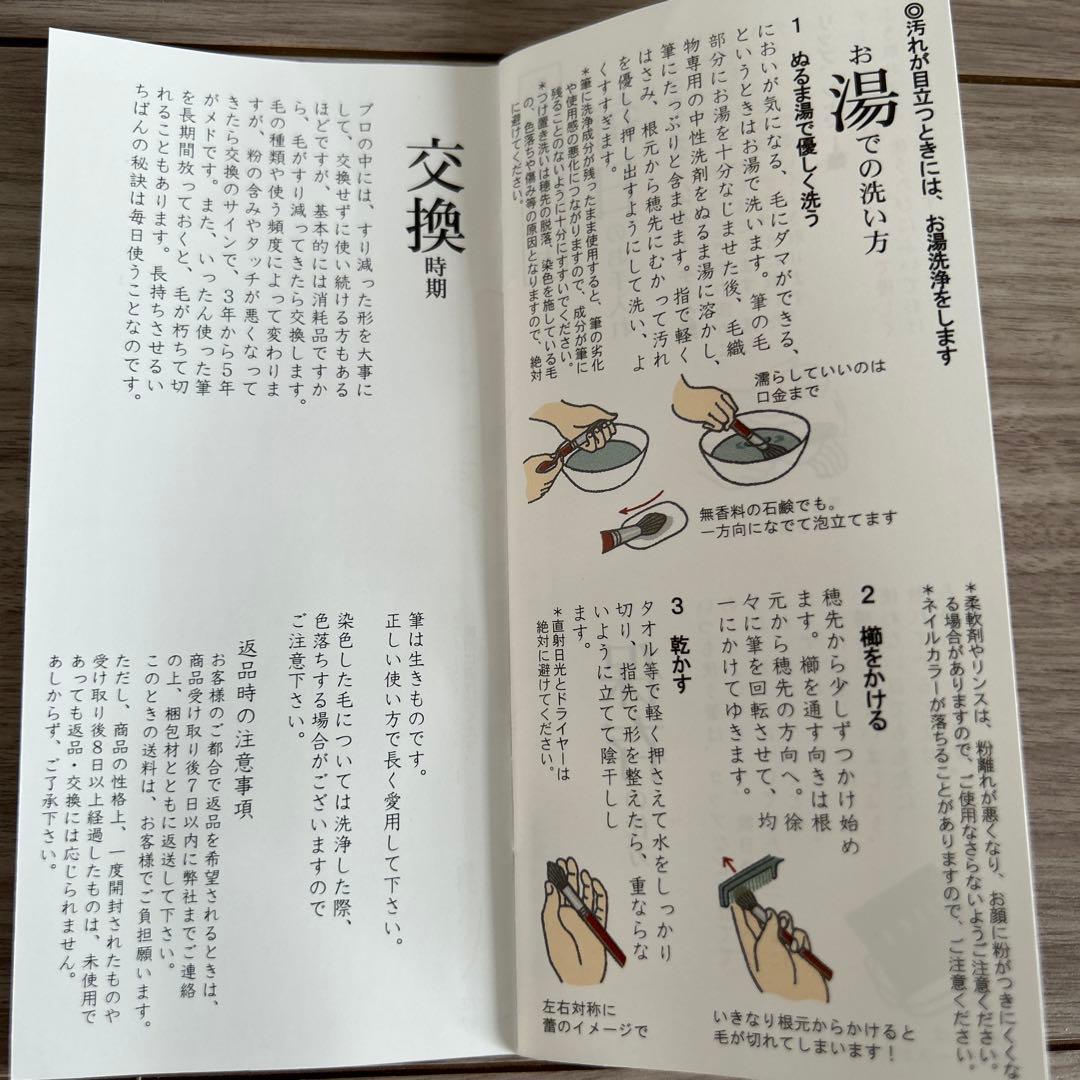 ◎汚れが目立つときには、お湯洗浄をします
お湯での洗い方
1 ぬるま湯で優しく洗う
においが気になる、毛にダマができる、
というときはお湯で洗います。筆の毛
部分にお湯を十分なじませた後、毛織
物専用の中性洗剤をぬるま湯に溶かし、
筆にたっぷりと含ませます。指で軽く
はさみ、根元から穂先にむかって汚れ
を優しく押し出すようにして洗い、よ
くすすぎます。
*筆に洗浄成分が残ったまま使用すると、筆の劣化
や使用感の悪化につながりますので、成分が筆に
残ることのないように十分にすすいでください。
*つけ置き洗いは穂先の脱落、染色を施している毛
の、色落ちや傷み等の原因となりますので、絶対
に避けてください。
濡らしていいのは
口金まで
無香料の石鹸でも。
一方向になでて泡立てます
*柔軟剤やリンスは、粉離れが悪くなり、お顔に粉がつきにくくな
る場合がありますので、ご使用なさらないようご注意ください。
*ネイルカラーが落ちることがありますので、ご注意ください。
2 櫛をかける
穂先から少しずつかけ始め
ます。櫛を通す向きは根
元から穂先の方向へ。徐
々に筆を回転させて、均
一にかけてゆきます。
いきなり根元からかけると
毛が切れてしまいます！
3 乾かす
タオル等で軽く押さえて水をしっかり
切り、指先で形を整えたら、重ならな
いように立てて陰干し
ます。
*直射日光とドライヤーは
絶対に避けてください。
左右対称に
蕾のイメージで
交換時期
プロの中には、すり減った形を大事に
して、交換せずに使い続ける方もある
ほどですが、基本的には消耗品ですか
ら、毛がすり減ってきたら交換します。
毛の種類や使う頻度によって変わりま
すが、粉の含みやタッチが悪くなって
きたら交換のサインで、３年から５年
がメドです。また、いったん使った筆
を長期間放っておくと、毛が朽ちて切
れることもあります。長持ちさせるい
ちばんの秘訣は毎日使うことなのです。
筆は生きものです。
正しい使い方で長く愛用して下さい。
染色した毛については洗浄した際、
色落ちする場合がございますので
ご注意下さい。
返品時の注意事項
お客様のご都合で返品を希望されるときは、
商品受け取り後7日以内に弊社までご連絡
の上、梱包材とともに返送して下さい。
このときの送料は、お客様でご負担願います。
ただし、商品の性格上、一度開封されたものや
受け取り後8日以上経過したものは、未使用で
あっても返品・交換には応じられません。
あしからず、ご了承下さい。